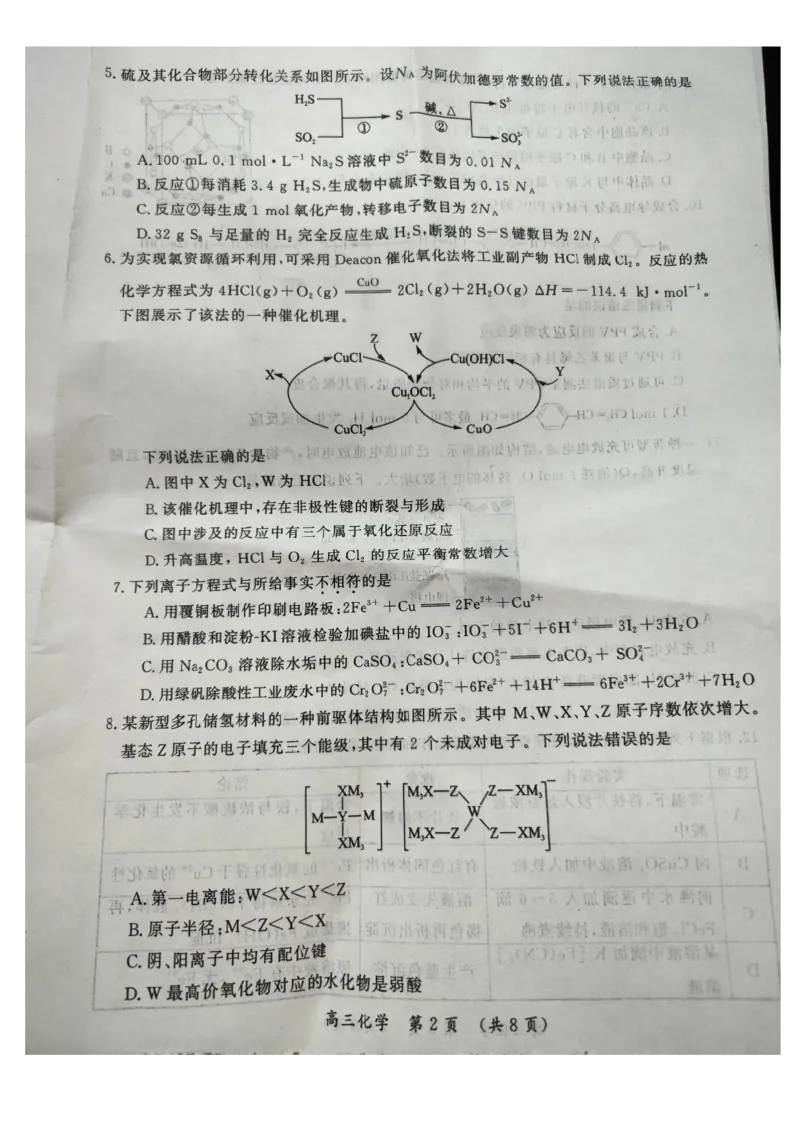 5. 硫及其化合物部分转化关系如图所示。设N_A 为阿伏加德罗常数的值。下列说法正确的是
H₂S
SO₂
①
S
碱,△
②
S²⁻
SO₃²⁻
A. 100 mL 0.1 mol·L⁻¹ Na₂S溶液中 S²⁻数目为 0.01 N_A
B. 反应①每消耗 3.4 g H₂S,生成物中硫原子数目为 0.15 N_A
C. 反应②每生成 1 mol 氧化产物,转移电子数目为 2N_A
D. 32 g S₈ 与足量的 H₂ 完全反应生成 H₂S,断裂的 S—S键数目为 2N_A
6. 为实现氯资源循环利用,可采用 Deacon 催化氧化法将工业副产物 HCl 制成 Cl₂。反应的热
化学方程式为 4HCl(g)+O₂(g) ══CuO══ 2Cl₂(g)+2H₂O(g) ΔH=-114.4 kJ·mol⁻¹。
下图展示了该法的一种催化机理。
Z W
CuCl Cu(OH)Cl
X Y
Cu₂OCl₂
CuCl₂ CuO
下列说法正确的是
A. 图中 X 为 Cl₂,W 为 HCl
B. 该催化机理中,存在非极性键的断裂与形成
C. 图中涉及的反应中有三个属于氧化还原反应
D. 升高温度, HCl 与 O₂ 生成 Cl₂ 的反应平衡常数增大
7. 下列离子方程式与所给事实不相符的是
A. 用覆铜板制作印刷电路板:2Fe³⁺+Cu══2Fe²⁺+Cu²⁺
B. 用醋酸和淀粉-KI溶液检验加碘盐中的 IO₃⁻:IO₃⁻+5I⁻+6H⁺══3I₂+3H₂O
C. 用 Na₂CO₃ 溶液除水垢中的 CaSO₄:CaSO₄+CO₃²⁻══CaCO₃+SO₄²⁻
D. 用绿矾除酸性工业废水中的 Cr₂O₇²⁻:Cr₂O₇²⁻+6Fe²⁺+14H⁺══6Fe³⁺+2Cr³⁺+7H₂O
8. 某新型多孔储氢材料的一种前驱体结构如图所示。其中 M、W、X、Y、Z 原子序数依次增大。
基态 Z 原子的电子填充三个能级,其中有 2 个未成对电子。下列说法错误的是
[XM₃ M—Y—M XM₃]⁺
[M₃X—Z Z—XM₃ W M₃X—Z Z—XM₃]⁻
A. 第一电离能:W<X<Y<Z
B. 原子半径:M<Z<Y<X
C. 阴、阳离子中均有配位键
D. W 最高价氧化物对应的水化物是弱酸
高三化学 第 2 页 (共 8 页)